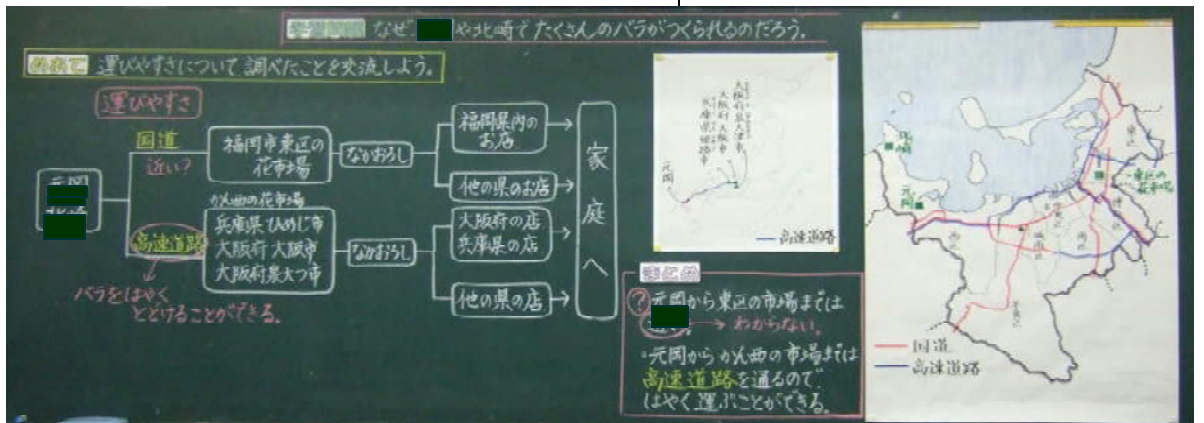 なぜ
や北崎でたくさんのバラがつくられるのだろう。
めあて 運びやすさについて調べたことを交流しよう。
運びやすさ
国道
近い?
福岡市東区の
花市場
なかおろし
福岡県内の
お店
他の県のお店
元岡
高速道路
かん西の花市場
兵庫県ひめじ市
大阪府大阪市
大阪府泉大つ市
なかおろし
大阪府の店
兵庫県の店
他の県の店
家庭へ
バラをはやく
とどけることができる。
大阪府泉大津市
大阪府大阪市
兵庫県姫路市
元岡
高速道路
まとめ
? 元岡から東区の市場までは
→ わからない。
・元岡からかん西の市場までは
高速道路を通るので
はやく運ぶことができる。
元岡
東区
東区の
花市場
西区
南区
国道
高速道路